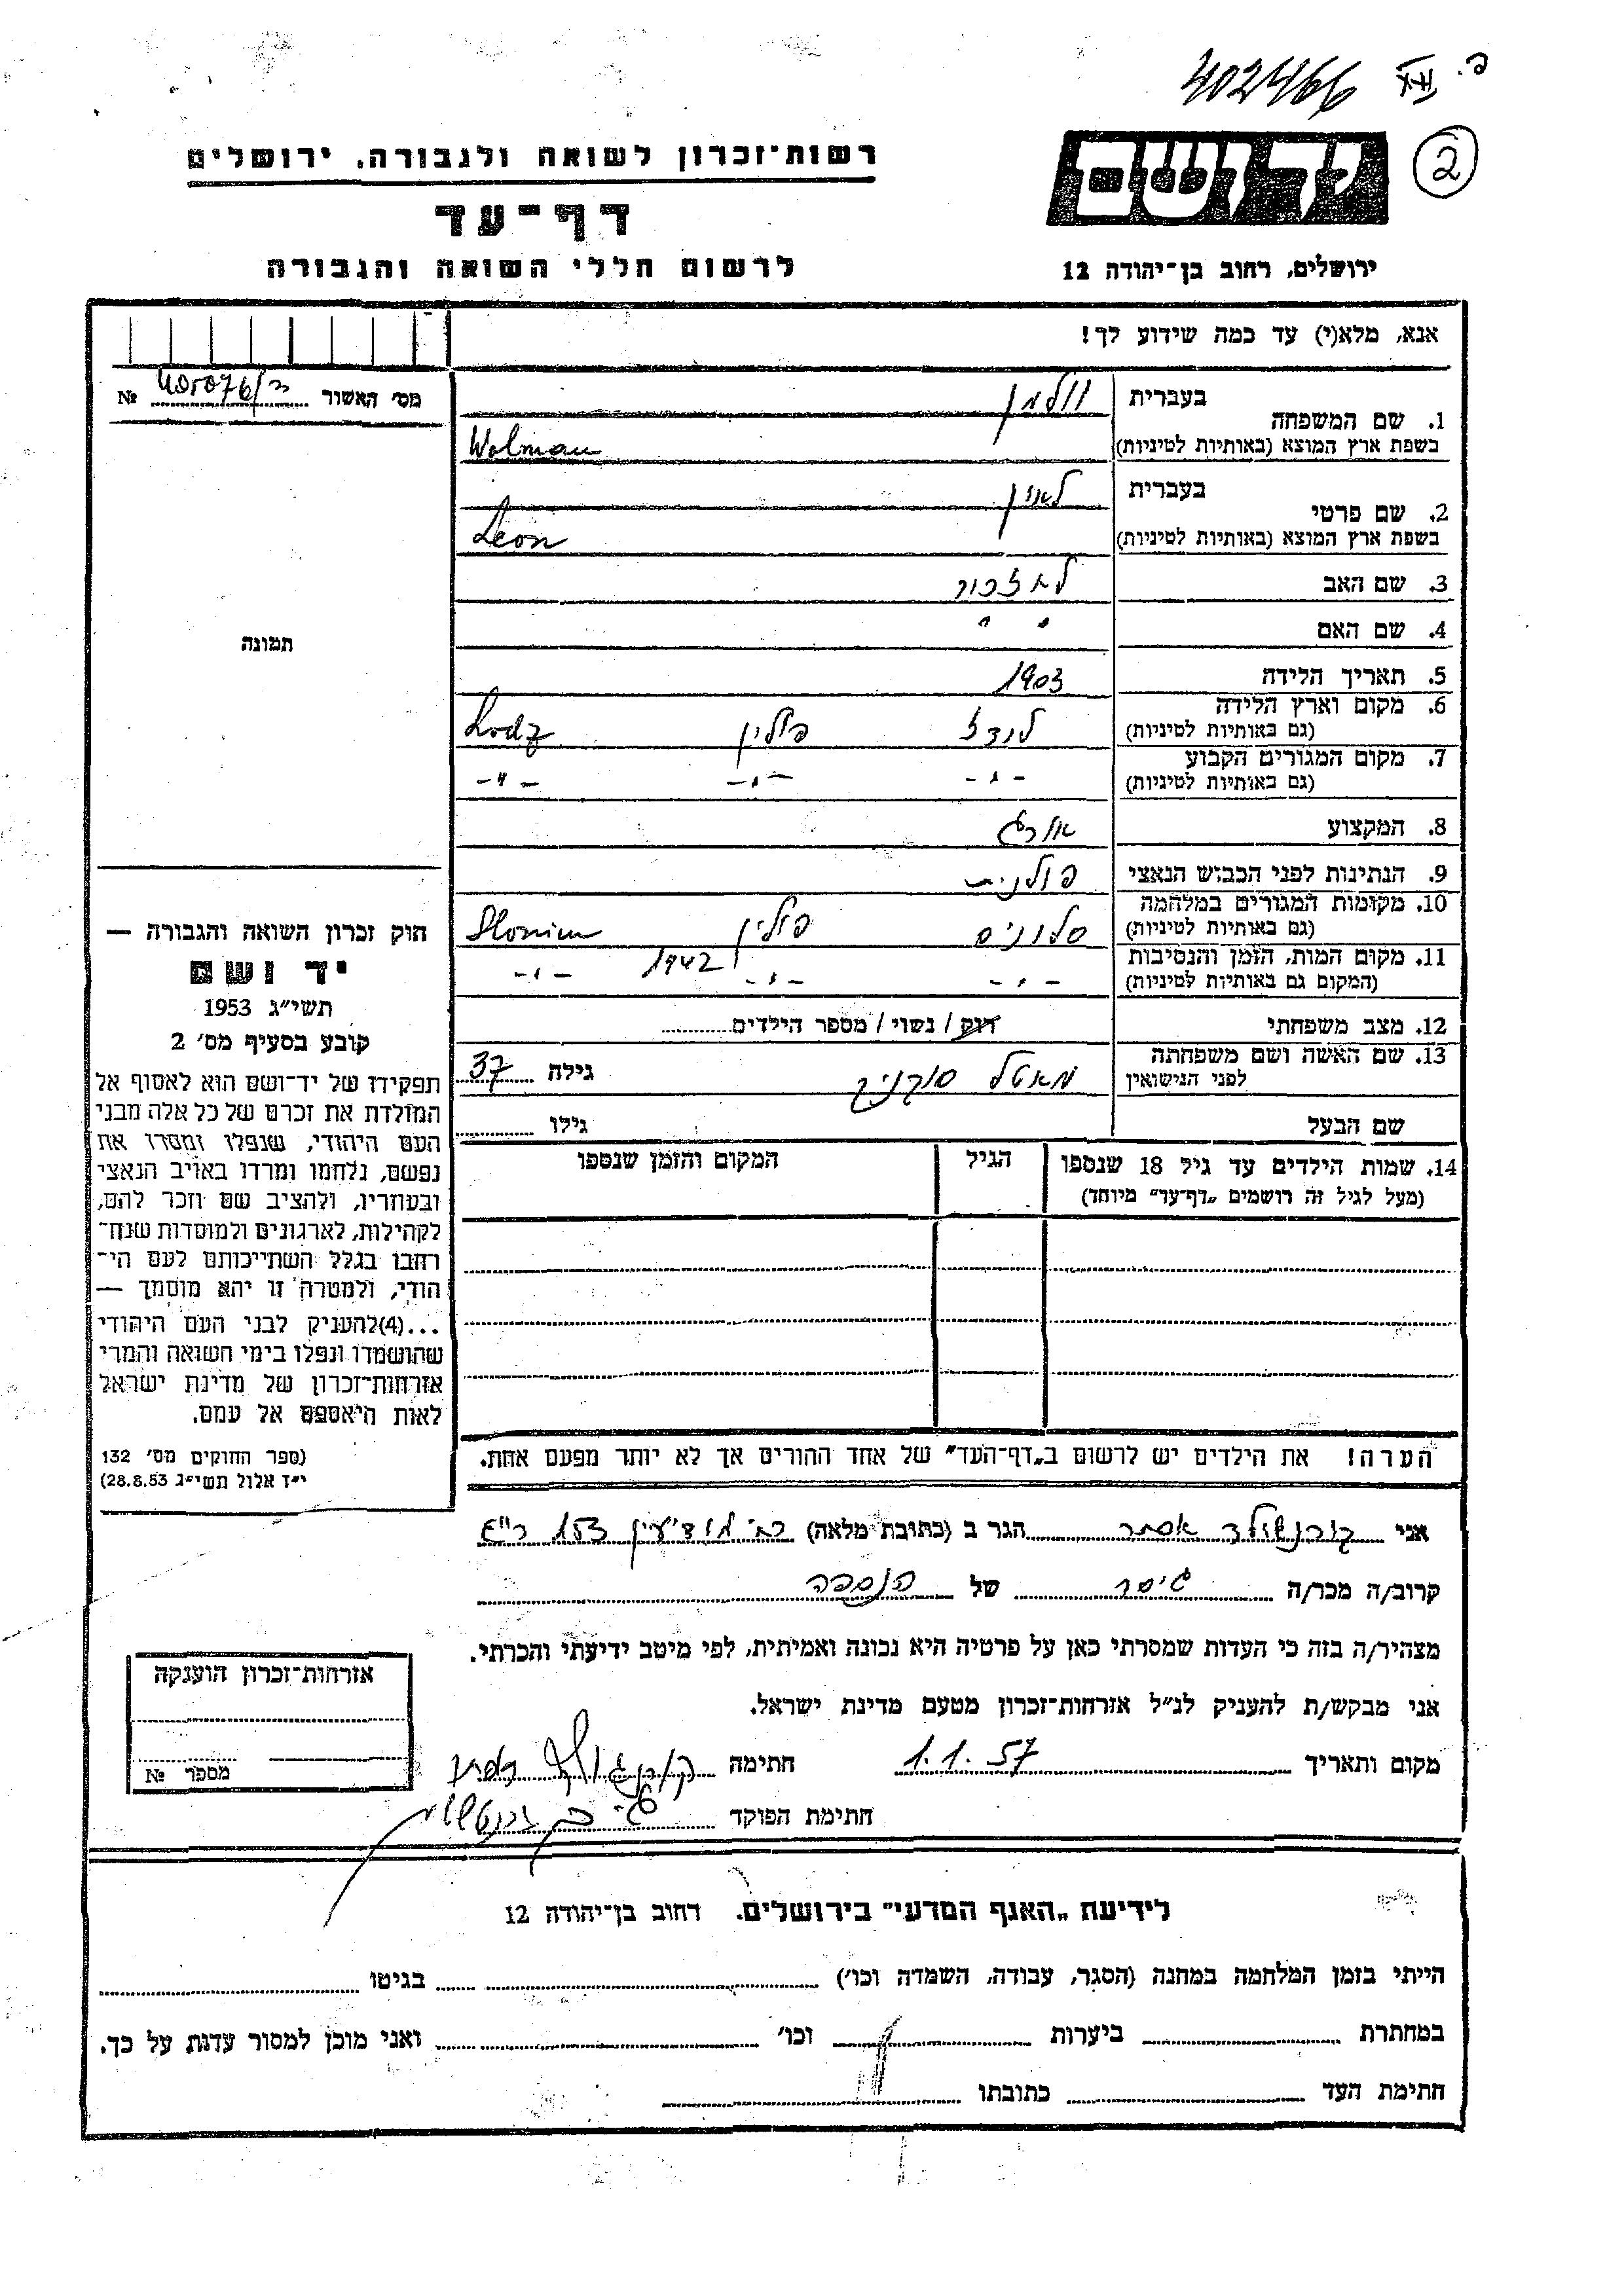 402466
2
יד ושם
רשות־זכרון לשואה ולגבורה, ירושלים
דף־עד
לרשום חללי השואה והגבורה
ירושלים, רחוב בן־יהודה 12
אנא, מלא(י) עד כמה שידוע לך!
מס׳ האשור №
1. שם המשפחה
בעברית וולמן
בשפת ארץ המוצא (באותיות לטיניות) Wolman
2. שם פרטי
בעברית לאון
בשפת ארץ המוצא (באותיות לטיניות) Leon
3. שם האב לא זכור
4. שם האם " "
5. תאריך הלידה 1903
6. מקום וארץ הלידה (גם באותיות לטיניות) לודז פולין Lodz
7. מקום המגורים הקבוע (גם באותיות לטיניות) -"- -"- -"-
8. המקצוע אורג
9. הנתינות לפני הכבוש הנאצי פולנית
10. מקומות המגורים במלחמה (גם באותיות לטיניות) סלונים פולין Slonim
11. מקום המות, הזמן והנסיבות (המקום גם באותיות לטיניות) -"- -"- 1942 -"-
12. מצב משפחתי רווק / נשוי / מספר הילדים
13. שם האשה ושם משפחתה לפני הנישואין גילה 37
שם הבעל גילו
14. שמות הילדים עד גיל 18 שנספו (מעל לגיל זה רושמים „דף־עד״ מיוחד) הגיל המקום והזמן שנספו
הערה! את הילדים יש לרשום ב„דף־העד״ של אחד ההורים אך לא יותר מפעם אחת.
תמונה
חוק זכרון השואה והגבורה —
יד ושם
תשי״ג 1953
קובע בסעיף מס׳ 2
תפקידו של יד־ושם הוא לאסוף אל
המולדת את זכרם של כל אלה מבני
העם היהודי, שנפלו ומסרו את
נפשם, נלחמו ומרדו באויב הנאצי
ובעוזריו, ולהציב שם וזכר להם,
לקהילות, לארגונים ולמוסדות שנח־
רבו בגלל השתייכותם לעם הי־
הודי, ולמטרה זו יהא מוסמך —
...(4)להעניק לבני העם היהודי
שהושמדו ונפלו בימי השואה והמרי
אזרחות־זכרון של מדינת ישראל
לאות היאספם אל עמם.
(ספר החוקים מס׳ 132
י״ז אלול תשי״ג 28.8.53)
אני אסתר הגר ב (כתובת מלאה) 153 ר"ג
קרוב/ה מכר/ה גיסה של הנספה
מצהיר/ה בזה כי העדות שמסרתי כאן על פרטיה היא נכונה ואמיתית, לפי מיטב ידיעתי והכרתי.
אני מבקש/ת להעניק לנ״ל אזרחות־זכרון מטעם מדינת ישראל.
מקום ותאריך 1.1.57 חתימה
חתימת הפוקד
אזרחות־זכרון הוענקה
מספר №
לידיעת „האגף המדעי״ בירושלים. רחוב בן־יהודה 12
הייתי בזמן המלחמה במחנה (הסגר, עבודה, השמדה וכו׳) בגיטו
במחתרת ביערות וכו׳ ואני מוכן למסור עדות על כך.
חתימת העד כתובתו